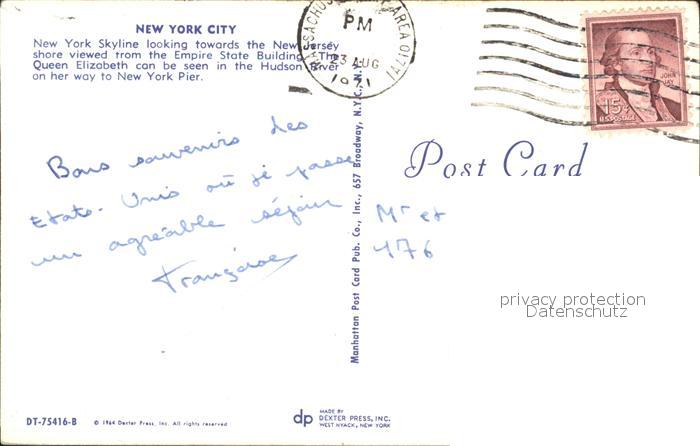 NEW YORK CITY
New York Skyline looking towards the New Jersey
shore viewed from the Empire State Building. The
Queen Elizabeth can be seen in the Hudson River
on her way to New York Pier.
PM
23 AUG
1971
AREA 017
15¢
JOHN
JAY
U.S. POSTAGE
Bons souvenirs des
Etats-Unis où je passe
un agréable séjour
Françoise
Manhattan Post Card Pub. Co., Inc., 657 Broadway, N.Y.C., N.Y.
Post Card
Mr et
176
privacy protection
Datenschutz
DT-75416-B
© 1964 Dexter Press, Inc. All rights reserved
dp
MADE BY
DEXTER PRESS, INC.
WEST NYACK, NEW YORK